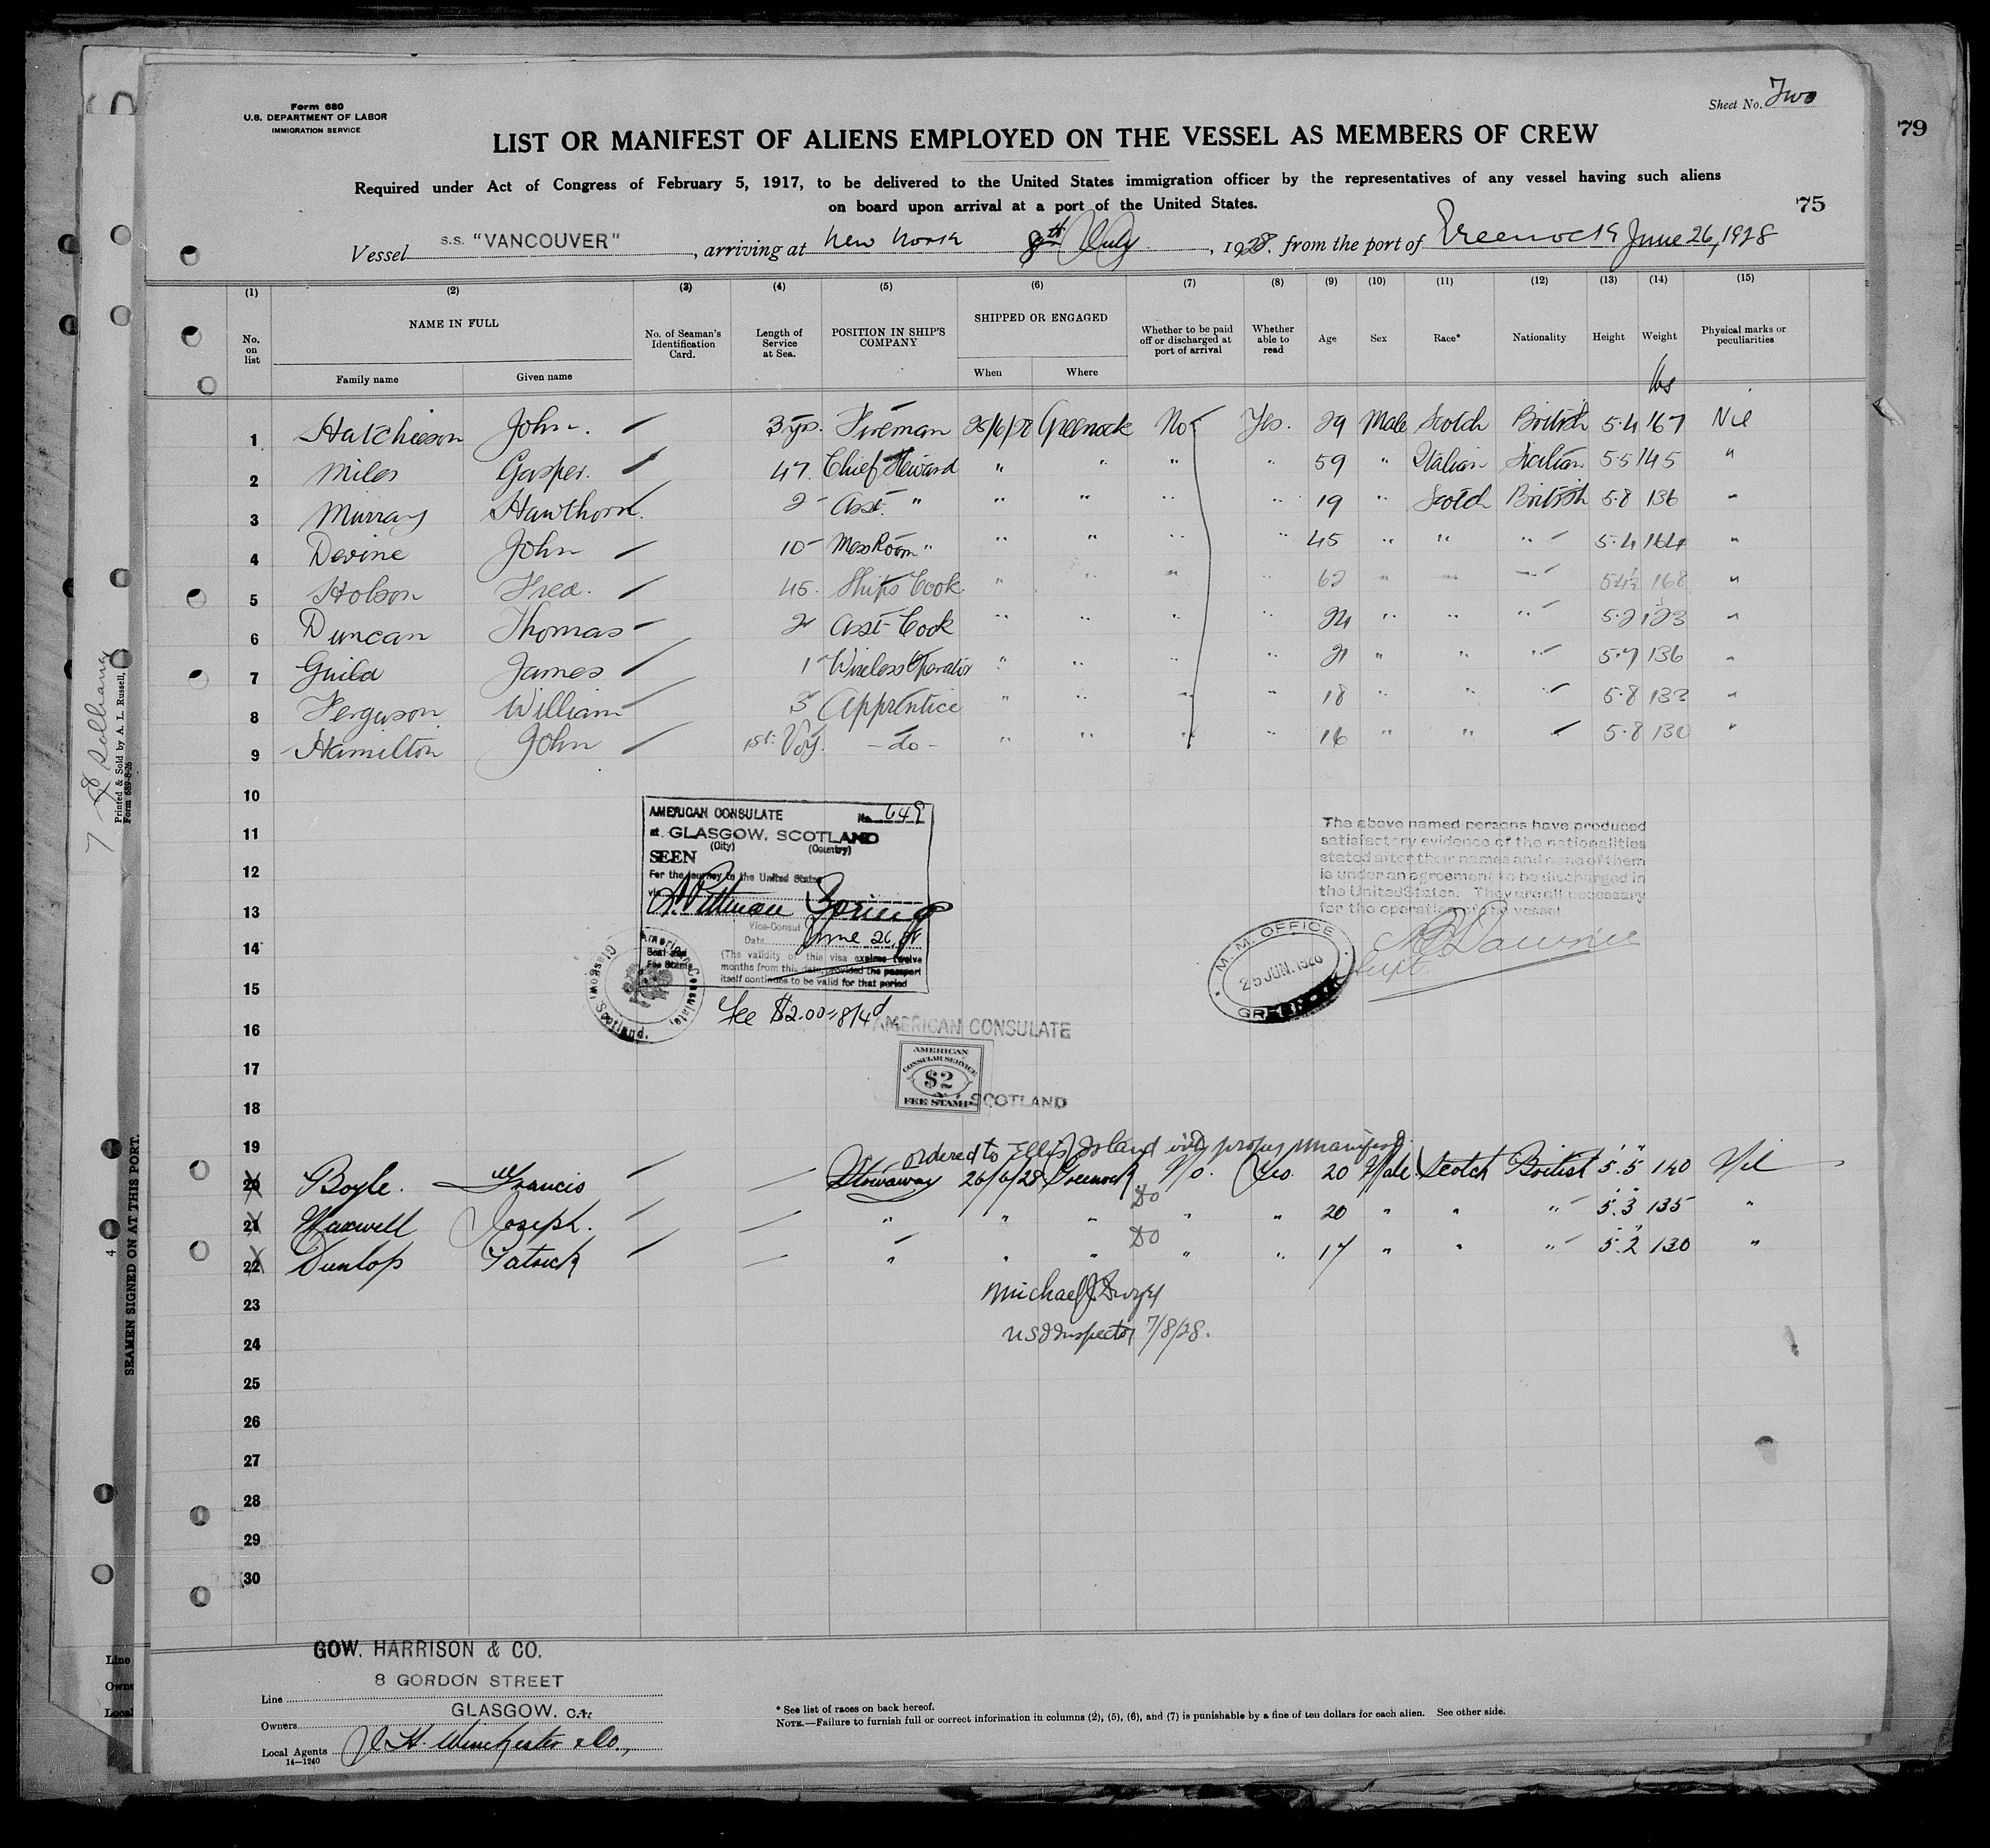 Form 680
U.S. DEPARTMENT OF LABOR
IMMIGRATION SERVICE
Sheet No. Two
79
LIST OR MANIFEST OF ALIENS EMPLOYED ON THE VESSEL AS MEMBERS OF CREW
Required under Act of Congress of February 5, 1917, to be delivered to the United States immigration officer by the representatives of any vessel having such aliens
on board upon arrival at a port of the United States.
75
Vessel S.S. "VANCOUVER", arriving at New York 8th July, 1928. from the port of Greenock June 26, 1928
(1) (2) (3) (4) (5) (6) (7) (8) (9) (10) (11) (12) (13) (14) (15)
No. on list NAME IN FULL No. of Seaman's Identification Card. Length of Service at Sea. POSITION IN SHIP'S COMPANY SHIPPED OR ENGAGED Whether to be paid off or discharged at port of arrival Whether able to read Age Sex Race* Nationality Height Weight Physical marks or peculiarities
Family name Given name When Where lbs
1 Hutchieson John. 3 yrs. Fireman 26/6/28 Greenock No Yes. 29 Male Scotch British 5.4 167 Nil
2 Miles Gasper. 47. Chief Steward " " " " 59 " Italian Sicilian 5.5 145 "
3 Murray Hawthorn. 2 Asst. " " " " " 19 " Scotch British 5.8 136 "
4 Devine John 10 Mess Room " " " " " 45 " " " 5.4 164 "
5 Hobson Fred. 45. Ships Cook " " " " 62 " " " 5 4½ 168 "
6 Duncan Thomas 2 Asst Cook " " " " 24 " " " 5.2 123 "
7 Guild James 1 Wireless Operator " " " " 21 " " " 5.7 136 "
8 Ferguson William 3 Apprentice " " " " 18 " " " 5.8 133 "
9 Hamilton John 1st Voy. - do - " " " " 16 " " 5.8 130 "
10
11
12
13
14
15
16
17
18
19
AMERICAN CONSULATE No. 649
at GLASGOW, SCOTLAND
(City) (Country)
SEEN
For the journey to the United States
via
Vice-Consul
Date June 26, 28
(The validity of this visa expires twelve
months from this date, provided the passport
itself continues to be valid for that period
Seal and
Fee Stamp
American Consulate, Glasgow, Scotland.
Fee $2.00 = 8/4d
AMERICAN CONSULATE
AMERICAN
CONSULAR SERVICE
$2
FEE STAMP
SCOTLAND
The above named persons have produced
satisfactory evidence of the nationalities
stated after their names and none of them
is under an agreement to be discharged in
the United States. They are all necessary
for the operation of the vessel.
Supt
M. M. OFFICE
25 JUN. 1928
GREENOCK
ordered to Ellis Island with proper manifest
20 Boyle. Francis Stowaway 26/6/28 Greenock No. Yes. 20 Male Scotch British 5'.5" 140 Nil
21 Maxwell Joseph. " " " Do " " 20 " " " 5'.3" 135 "
22 Dunlop Patrick " " " Do " " 17 " " " 5'.2" 130 "
23
24
25
26
27
28
29
30
Michael J. Dwyer
US Inspector 7/8/28.
GOW, HARRISON & CO.
8 GORDON STREET
Line
GLASGOW, C.1.
Owners
Local Agents J. H. Winchester & Co.,
14—1240
* See list of races on back hereof.
NOTE.—Failure to furnish full or correct information in columns (2), (5), (6), and (7) is punishable by a fine of ten dollars for each alien. See other side.
Printed & Sold by A. L. Russell,
Form 689-8-26
SEAMEN SIGNED ON AT THIS PORT.
4
Line
Owne
Local